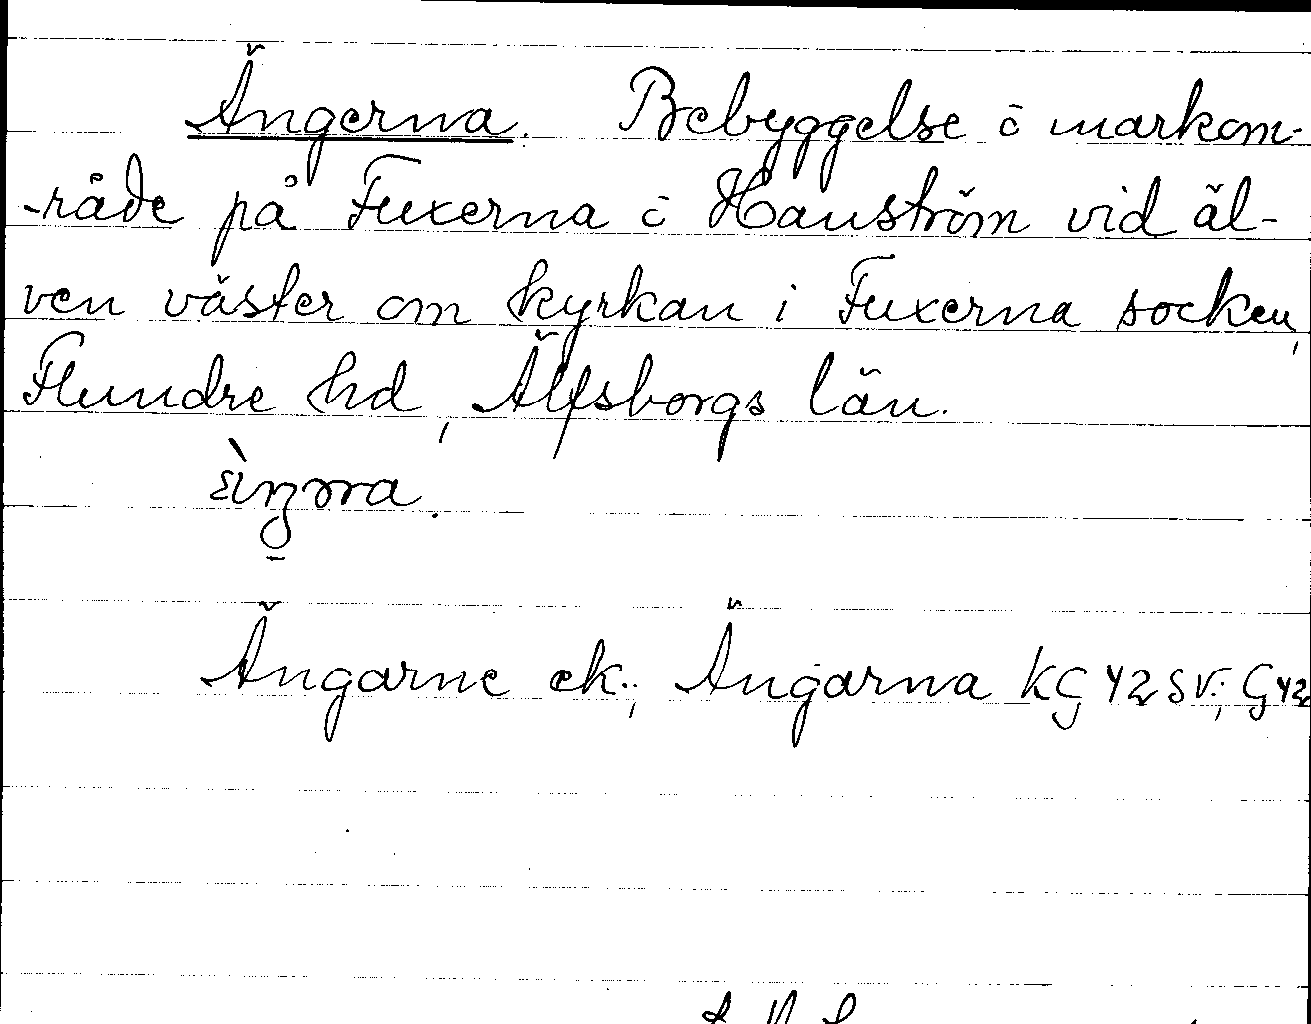 Ängerna. Bebyggelse o markom-
-råde på Fuxerna o Hanström vid äl-
ven väster om kyrkan i Fuxerna socken,
Flundre hd, Älfsborgs län.
Ängarne ek.; Ängarna KG 42 SV.; G 42